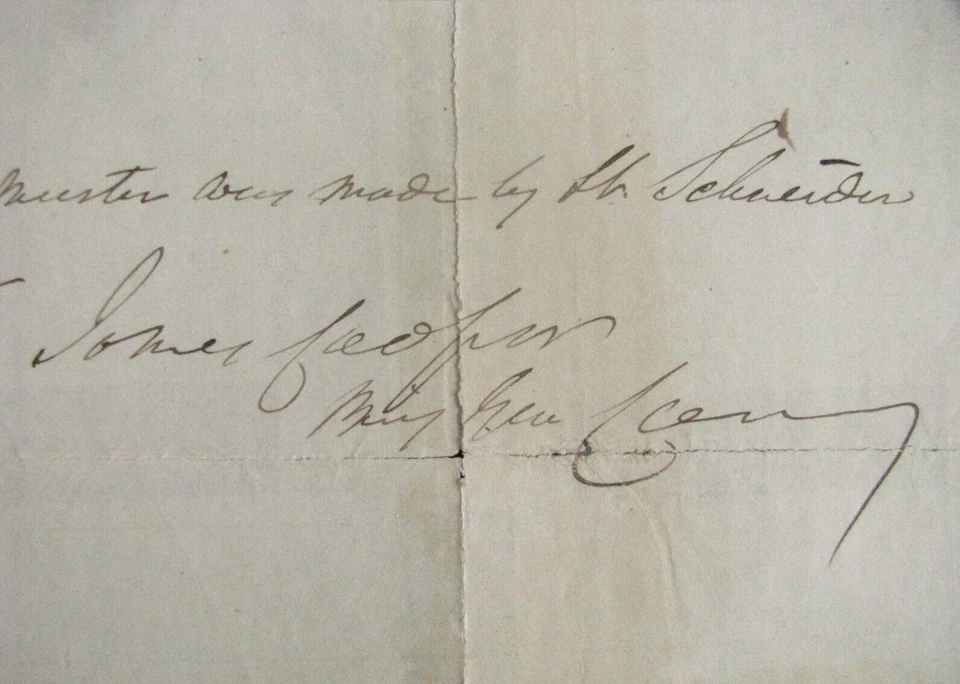 muster was made by Lt. Schneider
James Cooper
Brig Gen Com